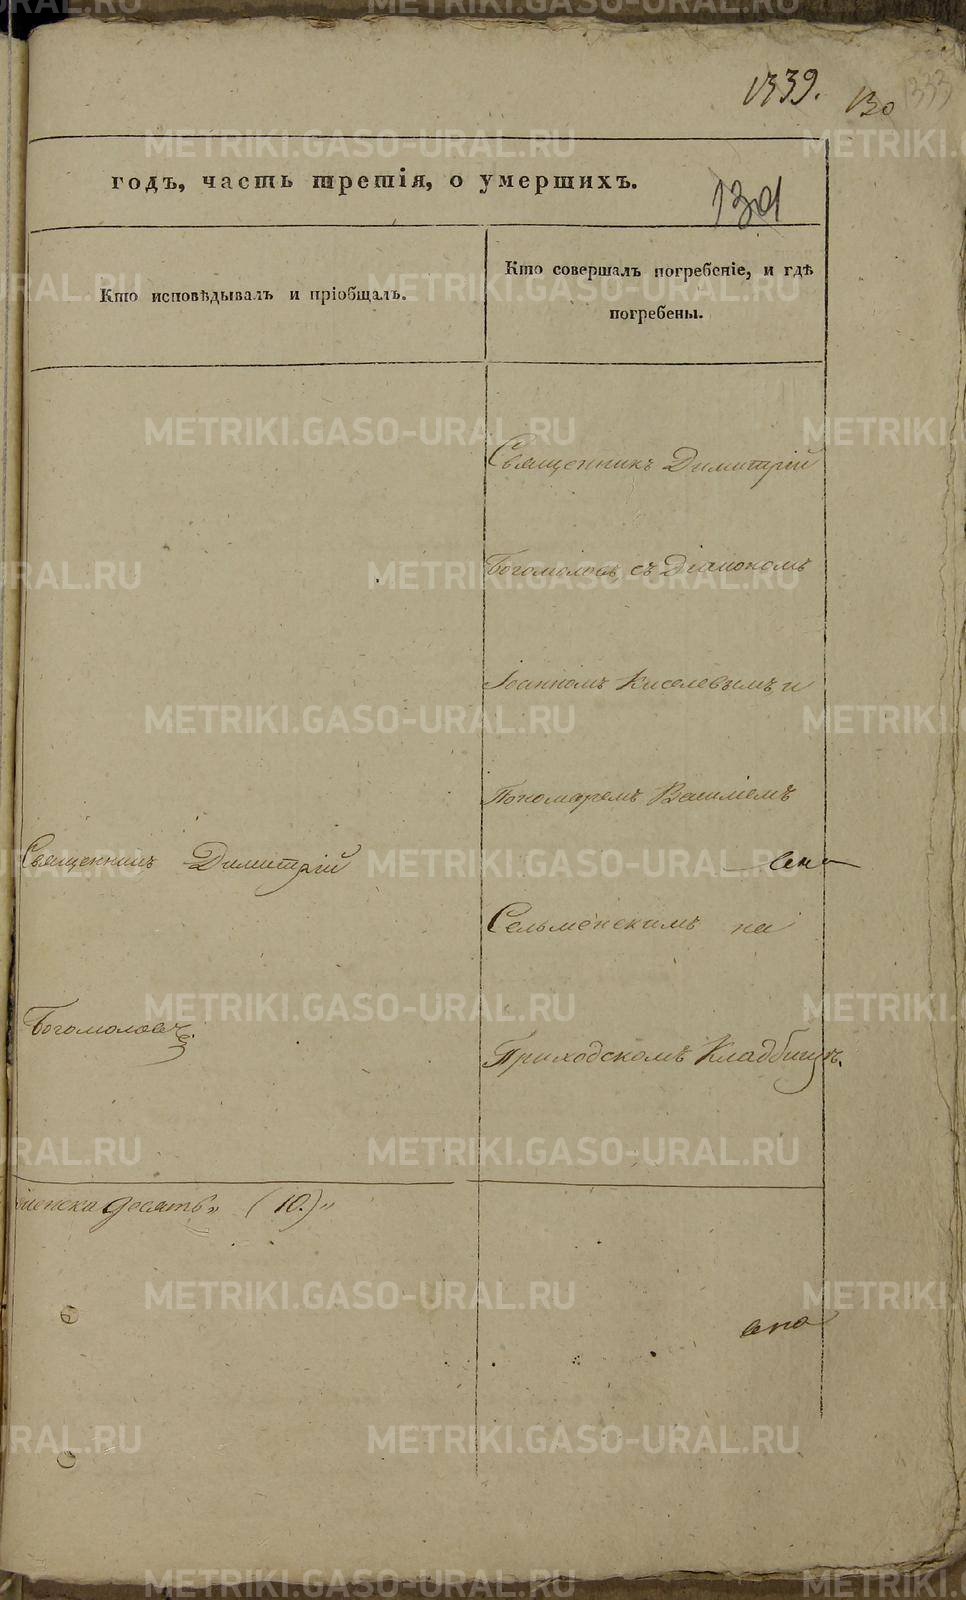 1339.
130
133
годъ, часть третія, о умершихъ.
Кто исповѣдывалъ и пріобщалъ.
Кто совершалъ погребеніе, и гдѣ
погребены.
Священникъ Димитрій
Богомоловъ съ Діакономъ
Іоанномъ Киселевымъ и
Пономаремъ Василіемъ
Священникъ Димитрій
Сельменскимъ на
Богомоловъ.
Приходскомъ Кладбищѣ.
женска десять„ (10.)„
METRIKI.GASO-URAL.RU